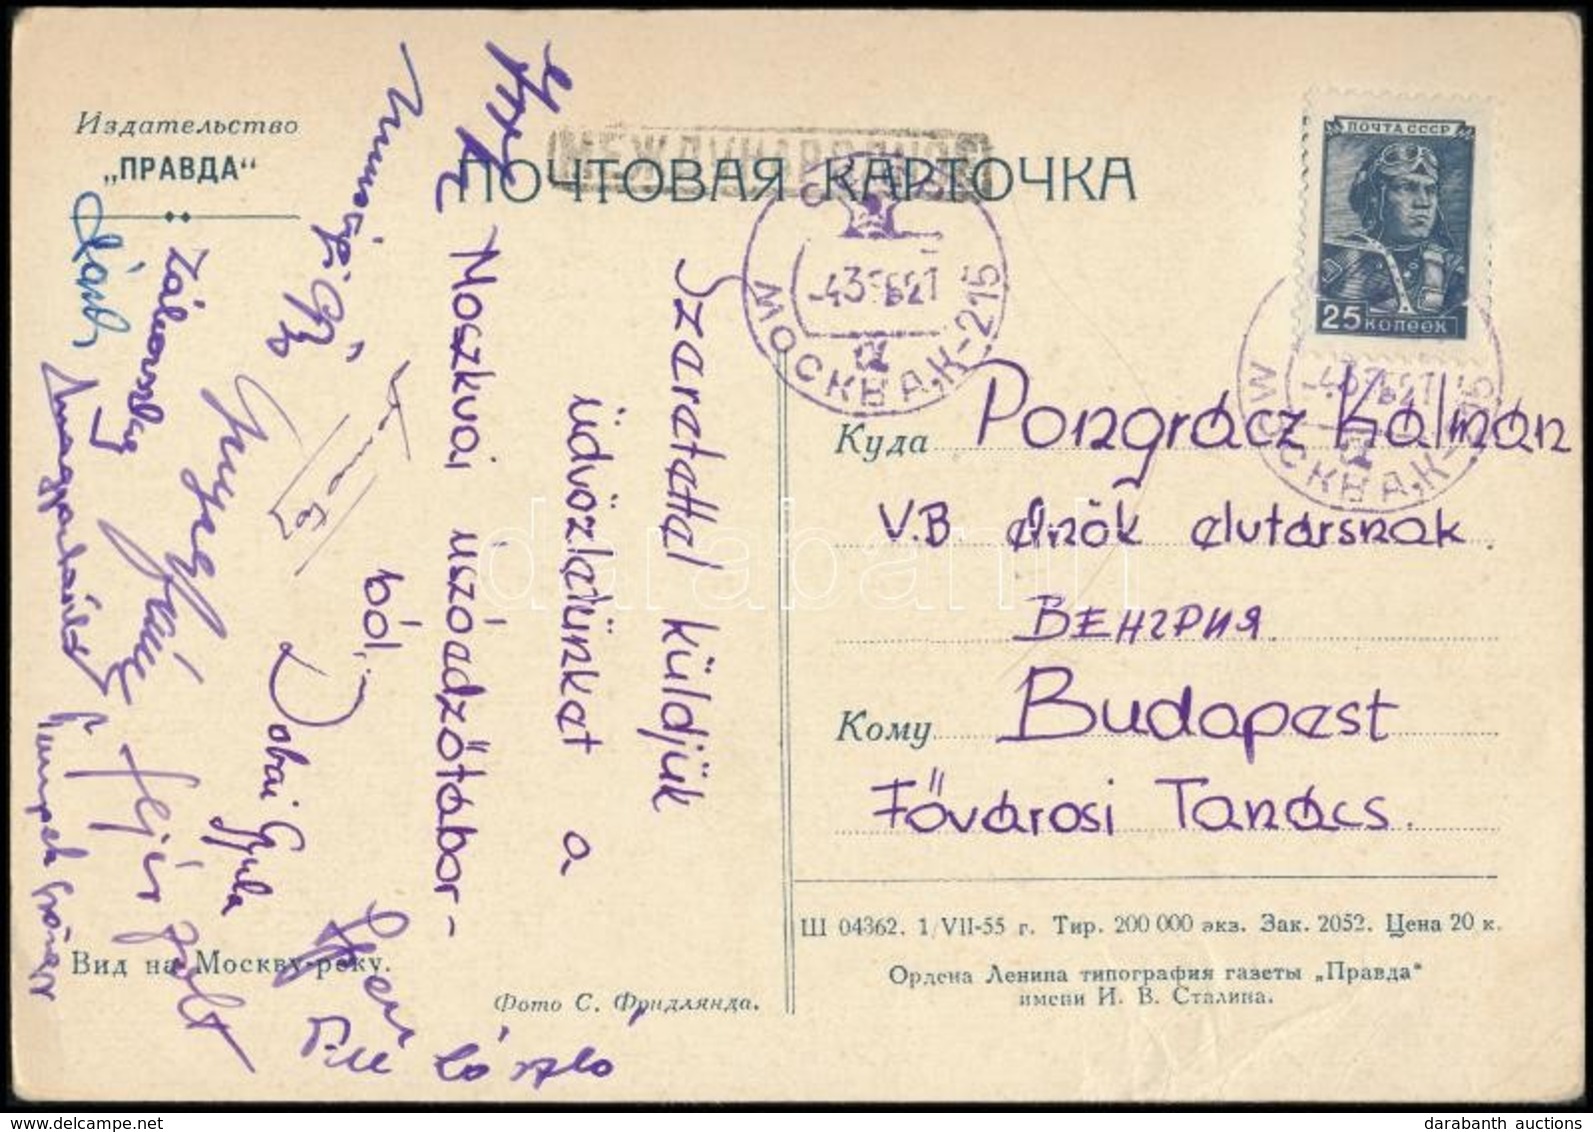 Издательство
„ПРАВДА“
ПОЧТОВАЯ КАРТОЧКА
МЕЖДУНАРОДНОЕ
ПОЧТА СССР
25 КОПЕЕК
МОСКВА, К-215
МОСКВА, К-215
Szeretettel küldjük
üdvözletünket a
Moszkvai úszóedzőtábor-
ból.
Dobai Gyula
Gyenge
Fejér Zsolt
László
Куда Pongrácz Kálmán
V.B elnök elvtársnak.
ВЕНГРИЯ.
Кому Budapest
Fővárosi Tanács.
Вид на Москву-реку.
Фото С. Фридлянда.
Ш 04362. 1/VII-55 г. Тир. 200 000 экз. Зак. 2052. Цена 20 к.
Ордена Ленина типография газеты „Правда“
имени И. В. Сталина.
darabanth
www.darabanth.com
darabanth auctions